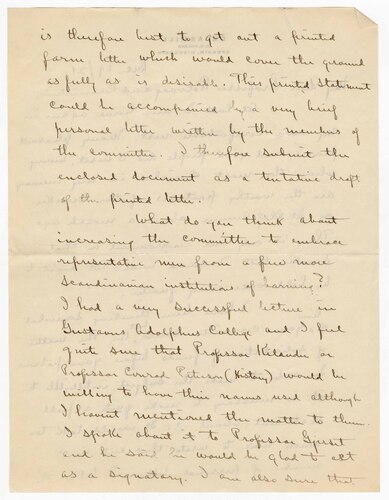 is therefore best to get out a printed
form letter which would cover the ground
as fully as is desirable. This printed statement
could be accompanied by a very brief
personal letter written by the members of
the committee. I therefore submit the
enclosed document as a tentative draft
of the printed letter.
What do you think about
increasing the committee to embrace
representative men from a few more
Scandinavian institutions of learning?
I had a very successful lecture in
Gustavus Adolphus College and I feel
quite sure that Professor Kelander or
Professor Conrad Peterson (History) would be
willing to have their names used although
I havent mentioned the matter to them.
I spoke about it to Professor Gjerset
and he said he would be glad to act
as a signatory. I am also sure that